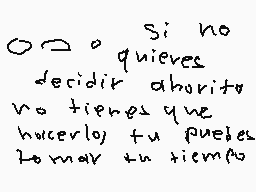 o o o si no
quieres
decidir ahorita
no tienes que
hacerlo, tu puedes
tomar tu tiempo